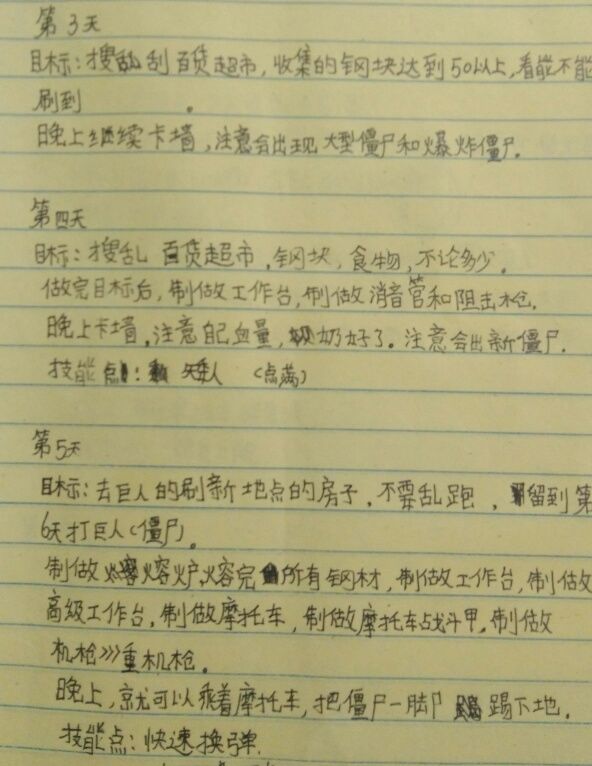 第3天
目标:搜刮百货超市,收集的钢块达到50以上,看能不能
刷到 。
晚上继续卡墙,注意会出现大型僵尸和爆炸僵尸.
第四天
目标:搜乱 百货超市,钢块,食物,不论多少.
做完目标后,制做工作台,制做消音管和阻击枪.
晚上卡墙,注意自己血量,奶好了.注意会出新僵尸.
技能点: 矮人 (点满)
第5天
目标:去巨人的刷新地点的房子,不要乱跑,留到第
6天打巨人(僵尸)。
制做熔炉熔完所有钢材,制做工作台,制做
高级工作台,制做摩托车,制做摩托车战斗甲.制做
机枪>>>重机枪.
晚上,就可以乘着摩托车,把僵尸一脚踢下地.
技能点:快速换弹.